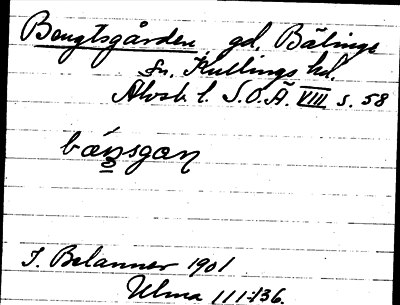 Bengtsgården, gd, Bälinge
sn, Kullings hd.
Älvsb. l. S.O.Ä. VIII s. 58
bæŋsgaɳ
J. Belanner 1901
Ulma 111:136.